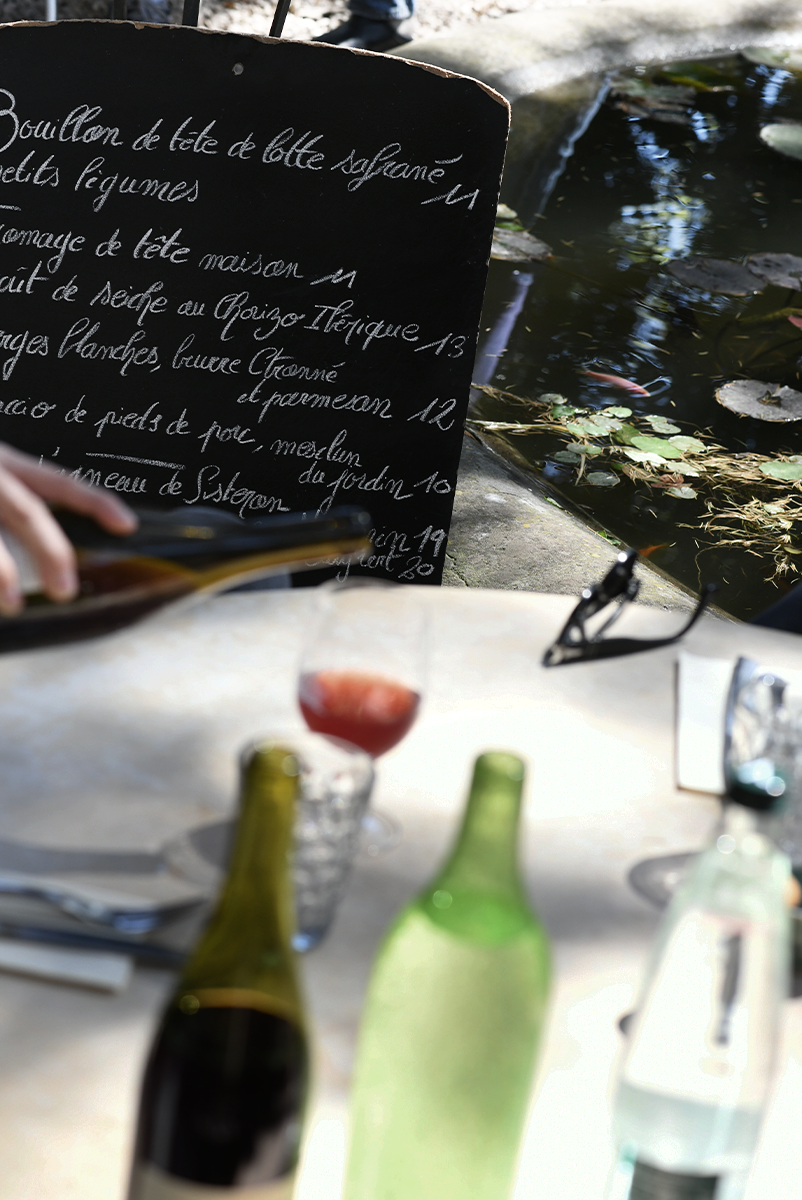 Bouillon de tête de lotte safrané
petits légumes 11
omage de tête maison 11
oût de seiche au Chorizo Ibérique 13
rges blanches, beurre Citronné
et parmesan 12
de pieds de porc, mesclun
du jardin 10
neau de Sisteron
19
20